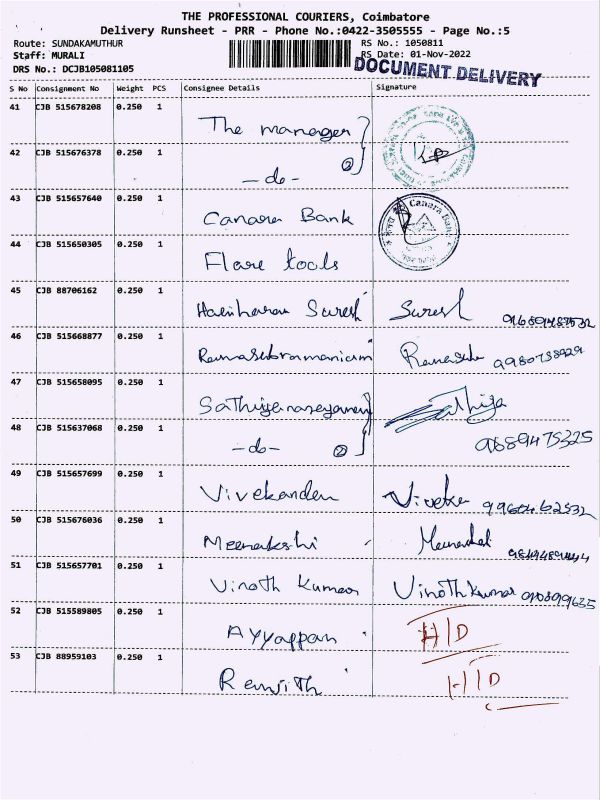 THE PROFESSIONAL COURIERS, Coimbatore
Delivery Runsheet - PRR - Phone No.:0422-3505555 - Page No.:5
Route: SUNDAKAMUTHUR RS No.: 1050811
Staff: MURALI RS Date: 01-Nov-2022
DRS No.: DCJB105081105 DOCUMENT DELIVERY
S No Consignment No Weight PCS Consignee Details Signature
41 CJB 515678208 0.250 1 The manager
42 CJB 515676378 0.250 1 -do- 2
43 CJB 515657640 0.250 1 Canara Bank Canara Bank
44 CJB 515650305 0.250 1 Flare tools
45 CJB 88706162 0.250 1 Hariharan Suresh Suresh
46 CJB 515668877 0.250 1 Ramasubramaniam
47 CJB 515658095 0.250 1 Sathiyanarayanan Sathiya
48 CJB 515637068 0.250 1 -do- 2 9889475325
49 CJB 515657699 0.250 1 Vivekanden
50 CJB 515676036 0.250 1 Meenakshi
51 CJB 515657701 0.250 1 Vinoth Kumar Vinoth Kumar
52 CJB 515589805 0.250 1 Ayyappan H/D
53 CJB 88959103 0.250 1 Renjith H/D